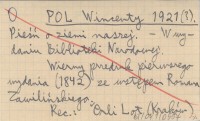 O POL Wincenty 1921(?).
Pieśń o ziemi naszej. - Wy-
daniu Biblioteki Narodowej.
Wierny przedruk pierwszego
wydania (1842) ze wstępem Romana
Zawilińskiego.
Rec.: "Orli Lot (Kraków)